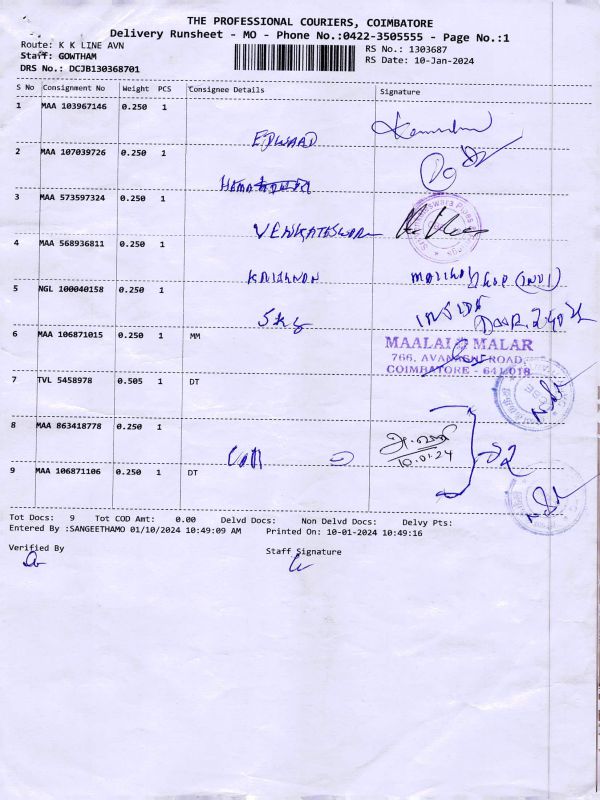 THE PROFESSIONAL COURIERS, COIMBATORE
Delivery Runsheet - MO - Phone No.:0422-3505555 - Page No.:1
Route: K K LINE AVN
RS No.: 1303687
Staff: GOWTHAM
RS Date: 10-Jan-2024
DRS No.: DCJB130368701
S No Consignment No Weight PCS Consignee Details Signature
1 MAA 103967146 0.250 1
EDWARD
2 MAA 107039726 0.250 1
HEMA
3 MAA 573597324 0.250 1
VENKATESWARA
4 MAA 568936811 0.250 1
KRISHNAN
5 NGL 100040158 0.250 1
INSIDE
6 MAA 106871015 0.250 1 MM
MAALAI MALAR
766, AVANASHI ROAD,
COIMBATORE - 641 018
7 TVL 5458978 0.505 1 DT
8 MAA 863418778 0.250 1
10.01.24
9 MAA 106871106 0.250 1 DT
Tot Docs: 9 Tot COD Amt: 0.00 Delvd Docs: Non Delvd Docs: Delvy Pts:
Entered By :SANGEETHAMO 01/10/2024 10:49:09 AM Printed On: 10-01-2024 10:49:16
Verified By Staff Signature